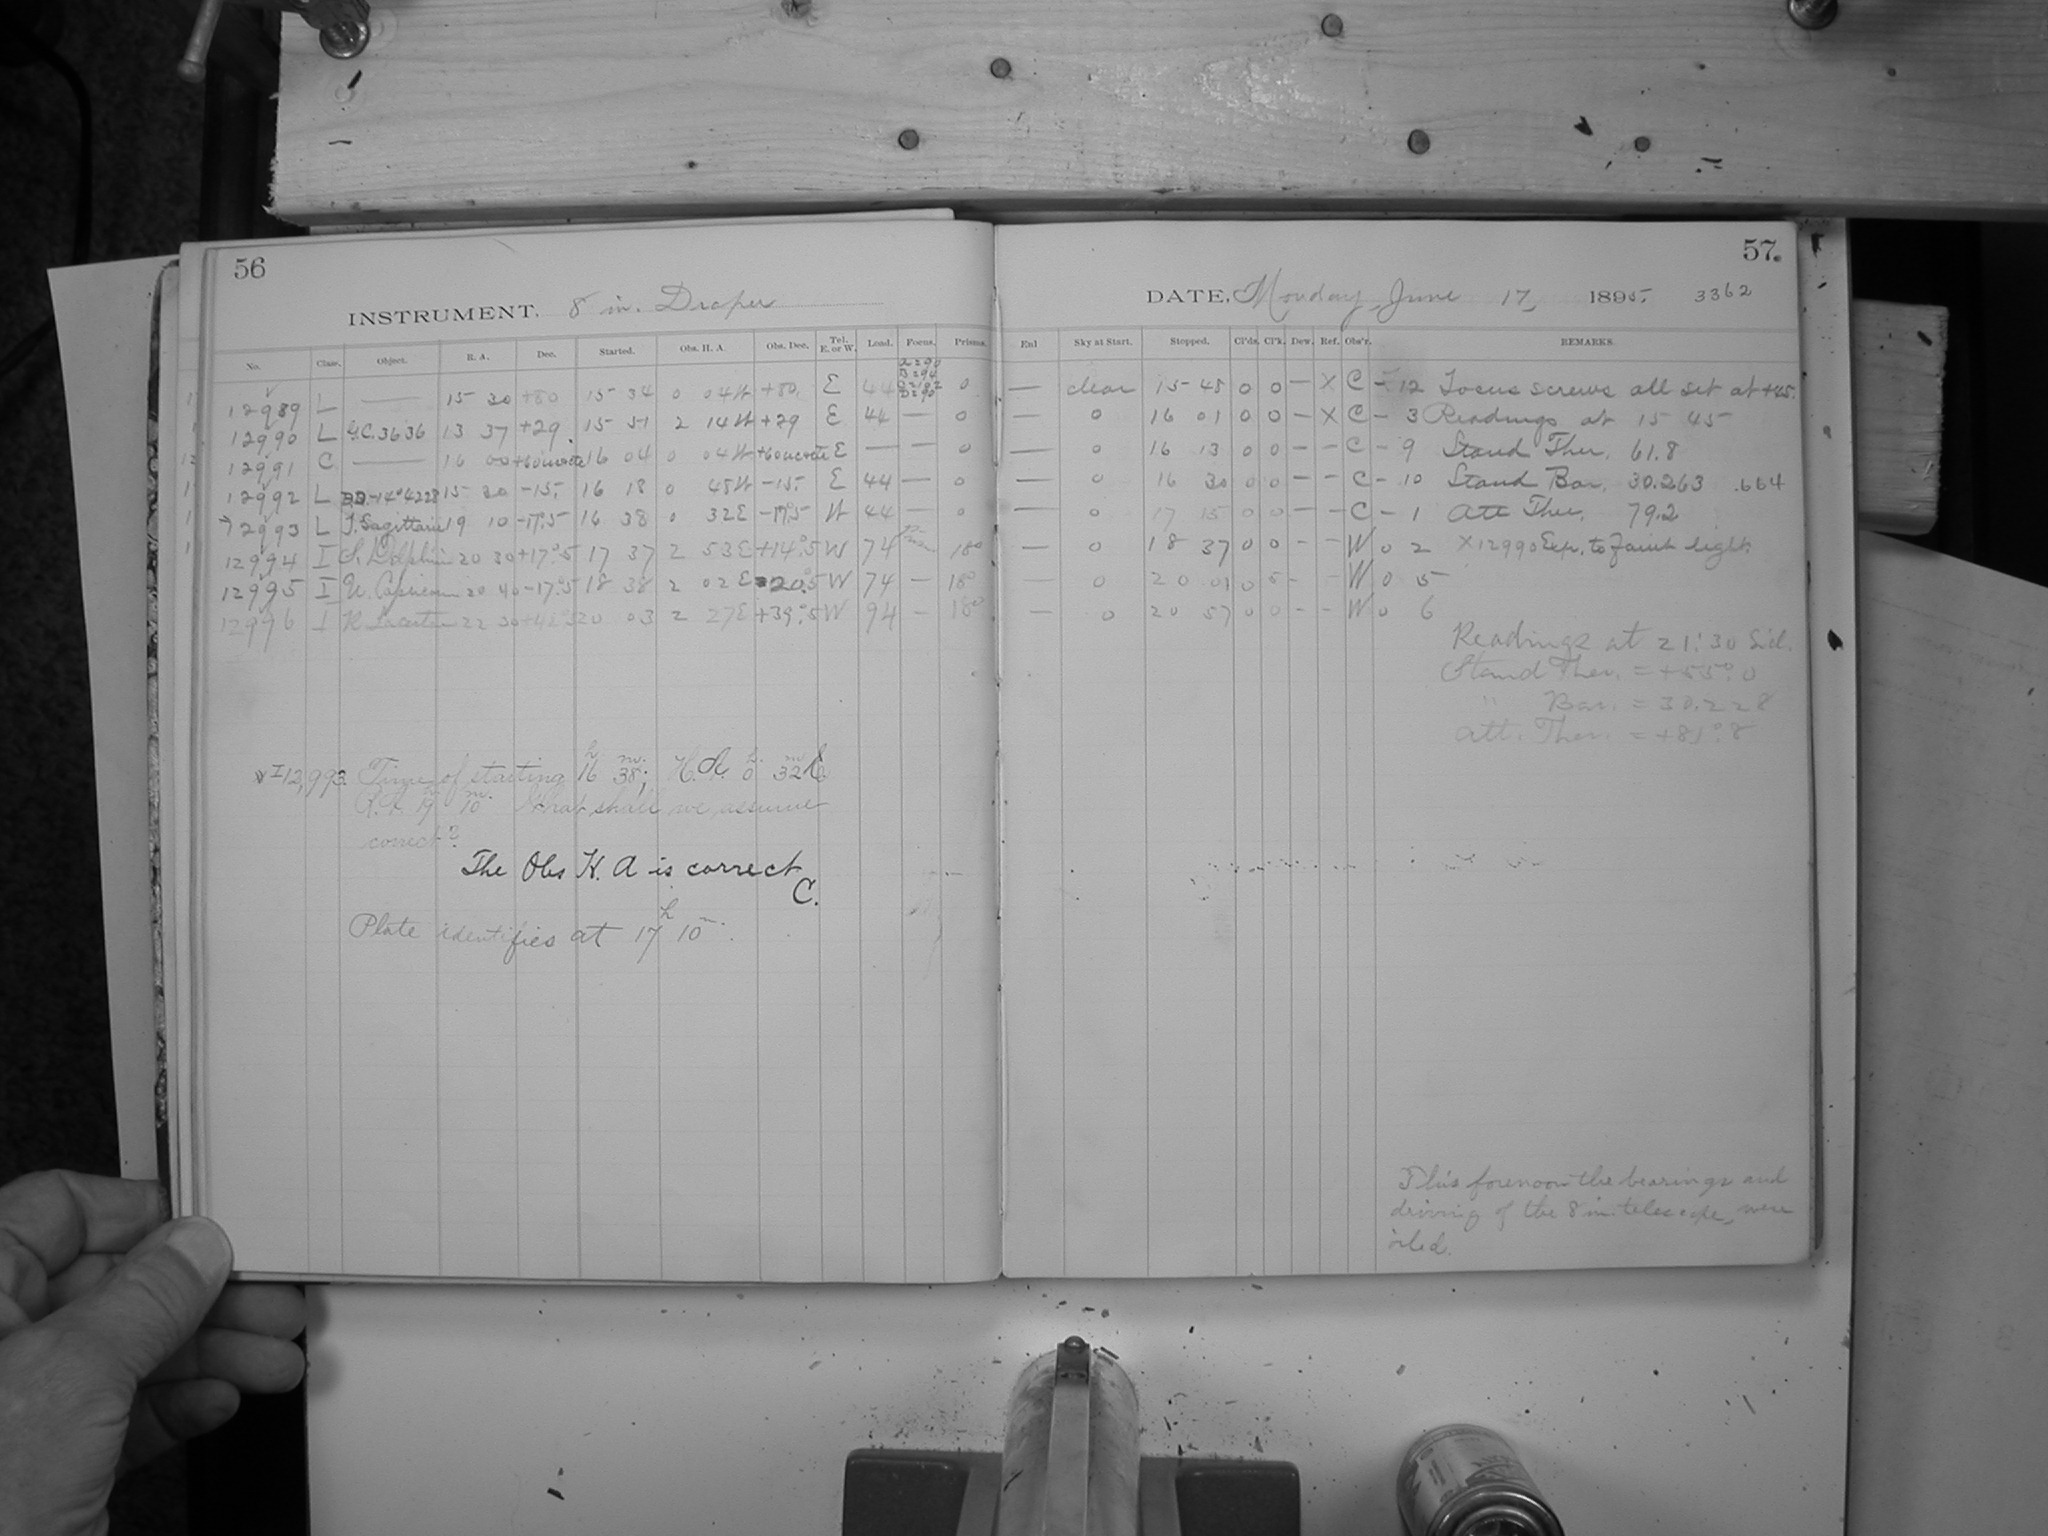 56
INSTRUMENT. 8 in. Draper
No. Class. Object. R. A. Dec. Started. Obs. H. A. Obs. Dec. Tel. E. or W. Lead. Focus. Prisms.
12989 L — 15 30 +80 15 34 0 04W +80. E 44 0
12990 L G.C. 3636 13 37 +29. 15 51 2 14W +29 E 44 — 0
12991 C — 16 00 16 04 0 04W E — — 0
12992 L -14°4228 15 30 -15. 16 18 0 48W -15. E 44 — 0
12993 L T. Sagittarii 19 10 -17°.5 16 38 0 32E -17°.5 W 44 — 0
12994 I S. Delphini 20 30 +17°.5 17 37 2 53E +14°.5 W 74 18°
12995 I U. Capricorni 20 40 -17°.5 18 38 2 02E -20°.5 W 74 — 18°
12996 I R Lacertae 22 30 20 03 2 27E +39°.5 W 94 — 18°
I 12,993. Time of starting 16h 38m.; H.A. 0h. 32m E.
R.A. 19h 10m. What shall we assume
correct?
The Obs H. A is correct
C.
Plate identifies at 17h 10m.
57.
DATE, Monday, June 17, 1895. 3362
Enl Sky at Start. Stopped. Cl'ds. Cl'k. Dew. Ref. Obs'r. REMARKS.
— clear 15 45 0 0 — X C - 12 Focus screws all set at +45.
— 0 16 01 0 0 — X C - 3 Readings at 15 45
— 0 16 13 0 0 — — C - 9 Stand Ther. 61.8
— 0 16 30 0 0 — — C - 10 Stand Bar. 30.263 .664
— 0 17 15 0 0 — — C - 1 Att Ther. 79.2
— 0 18 37 0 0 — — W 0 2 X12990 Exp. to faint light.
— 0 20 01 0 5 - - W 0 5
— 0 20 57 0 0 - - W 0 6
Readings at 21:30 Sid.
Stand Ther. = +55°.0
" Bar. = 30.228
Att. Ther. = +81°.8
This forenoon the bearings and
driving of the 8 in. telescope, were
oiled.